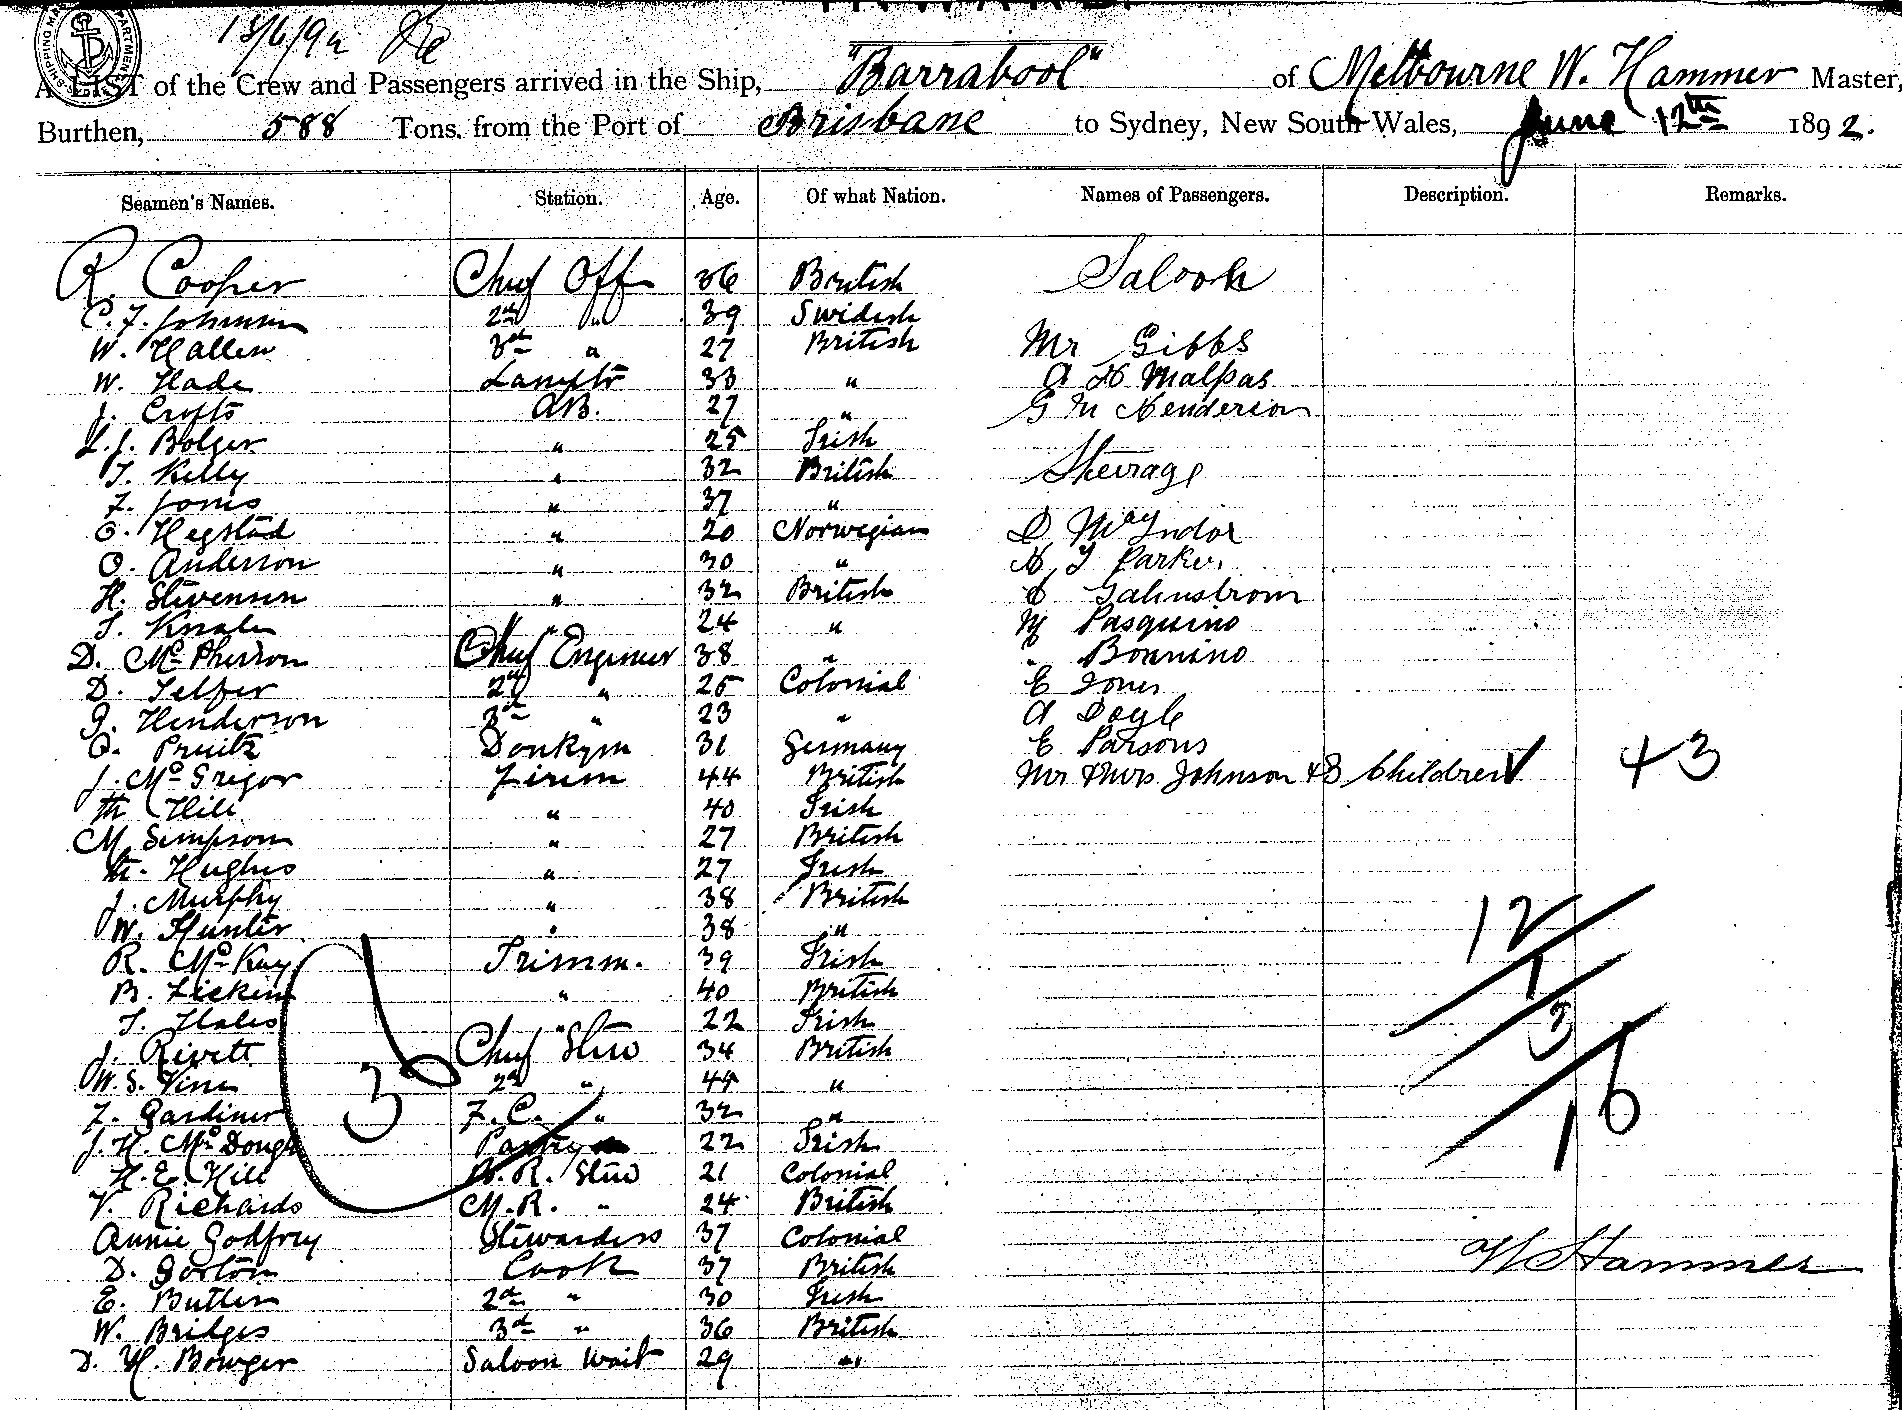 13/6/92
A LIST of the Crew and Passengers arrived in the Ship, "Barrabool" of Melbourne W. Hammer Master,
Burthen, 588 Tons. from the Port of Brisbane to Sydney, New South Wales, June 12th 1892.
Seamen's Names. Station. Age. Of what Nation. Names of Passengers. Description. Remarks.
R. Cooper Chief Off 36 British Saloon
C. F. Johnson 2nd " 39 Swidish
W. Hallen 3rd " 27 British Mr Gibbs
W. Hade Lamptr 33 " A H Malpas
J. Crofts AB. 27 " G M Henderson
L. J. Bolger " 25 Irish
T. Kelly " 32 British Steerage
F. Jones " 37 "
O. Hegstad " 20 Norwegian D McIndor
O. Anderson " 30 " H J Parker
H. Stevenson " 32 British C Galmstrom
T. " 24 " M Pasquino
D. McPherson Chief Engineer 38 " " Bonnino
D. Telfer 2nd " 25 Colonial E Jones
G. Henderson 3rd " 23 " A Doyle
O. Pruitz Donkym 31 Germany E Parsons
J. McGregor Firem 44 British Mr & Mrs Johnson & 3 Children + 3
M Hill " 40 Irish
M Simpson " 27 British
M. Hughes " 27 Irish
J. Murphy " 38 British
W. Hunter " 38 " 12
R. McKay Trimm. 39 Irish 1
B. Fickens " 40 British
T. Hales " 22 Irish 3
J. Rivett Chief Stew 34 British
W. S. Vine 2nd " 44 " 16
F. Gardiner F. C. " 32 "
J. H. McDoug Pantry 22 Irish
H. E. Hill R. Stew 21 Colonial
V. Richards M. R. " 24 British
Annie Godfrey Stewardess 37 Colonial W Hammer
D. Gorton Cook 37 British
E. Butler 2nd " 30 Irish
W. Bridges 3rd " 36 British
D. H. Bowger Saloon Wait 29 "